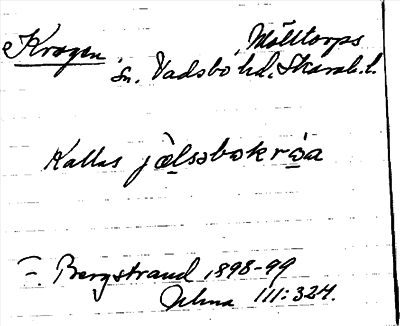 Krogen, Mölltorps
sn. Vadsbo hd. Skarab. l.
Kallas jälsəbəkråa
F. Bergstrand 1898-99
III: 324.